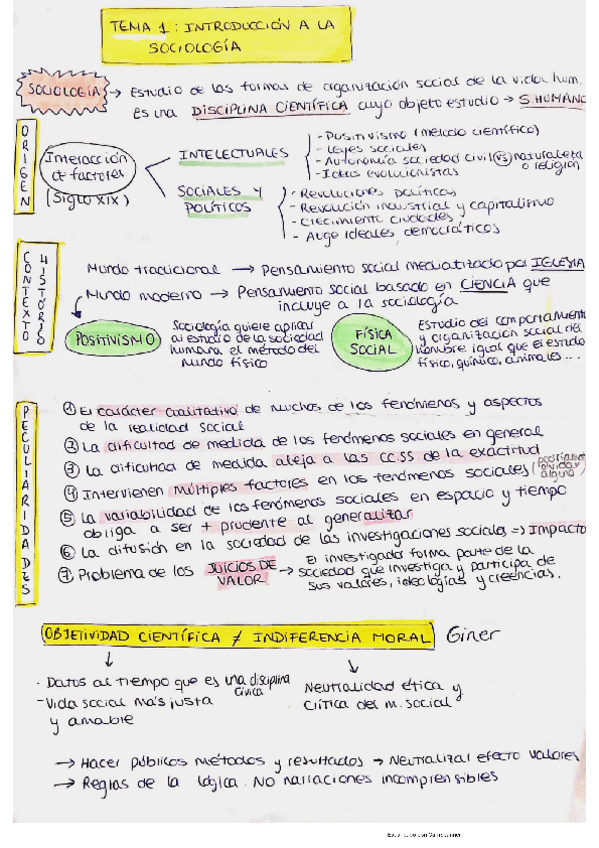 TEMA 1: INTRODUCCIÓN A LA
SOCIOLOGÍA
SOCIOLOGÍA → Estudio de las formas de organización social de la vida hum.
Es una DISCIPLINA CIENTÍFICA cuyo objeto estudio → S.HUMANO
ORIGEN
Interacción
de factores
(Siglo XIX)
INTELECTUALES
- Positivismo (método científico)
- Leyes sociales
- Autonomía sociedad civil (vs) naturaleza
o religión
- Ideas evolucionistas
SOCIALES Y
POLÍTICOS
- Revoluciones políticas
- Revolución industrial y capitalismo
- Crecimiento ciudades
- Auge ideales democráticos
CONTEXTO
HISTÓRICO
Mundo tradicional → Pensamiento social mediatizado por IGLESIA
Mundo moderno → Pensamiento social basado en CIENCIA que
incluye a la sociología
POSITIVISMO
Sociología quiere aplicar
al estudio de la sociedad
humana el método del
mundo físico
FÍSICA
SOCIAL
Estudio del comportamiento
y organización social del
hombre igual que el estudio
físico, químico, animales...
PECULIARIDADES
① El carácter cualitativo de muchos de los fenómenos y aspectos
de la realidad social
② La dificultad de medida de los fenómenos sociales en general
③ La dificultad de medida aleja a las CC.SS de la exactitud
④ Intervienen múltiples factores en los fenómenos sociales (podríamos
olvidar
alguno)
⑤ La variabilidad de los fenómenos sociales en espacio y tiempo
obliga a ser + prudente al generalizar
⑥ La difusión en la sociedad de las investigaciones sociales => Impacto
⑦ Problema de los JUICIOS DE
VALOR → El investigador forma parte de la
sociedad que investiga y participa de
sus valores, ideologías y creencias.
OBJETIVIDAD CIENTÍFICA ≠ INDIFERENCIA MORAL Giner
· Datos al tiempo que es una disciplina
cívica
- Vida social más justa
y amable
Neutralidad ética y
crítica del m. social
→ Hacer públicos métodos y resultados → Neutralizar efecto valores
→ Reglas de la lógica. No narraciones incomprensibles